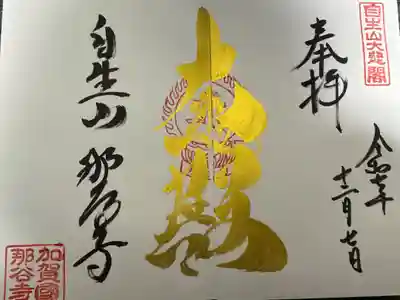 自生山大悲閣
奉拝
令和六年
十二月七日
大悲閣
自生山 那谷寺
加賀國
那谷寺